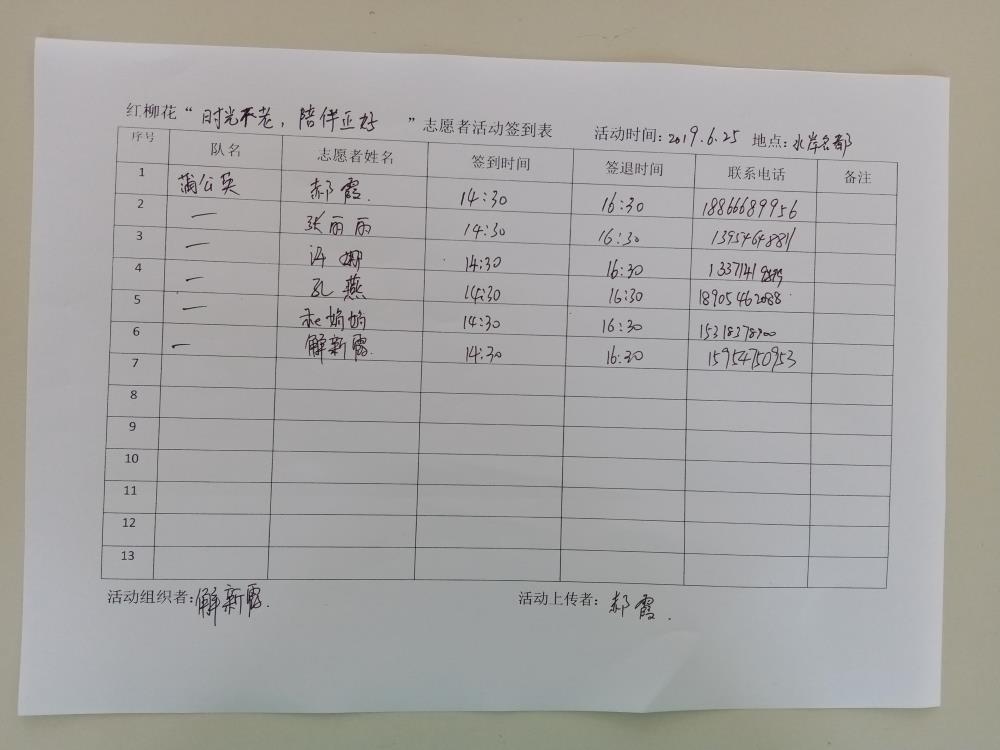 红柳花“时光不老，陪伴正好”志愿者活动签到表 活动时间：2019.6.25 地点：水岸名都
序号 队名 志愿者姓名 签到时间 签退时间 联系电话 备注
1 蒲公英 郝霞. 14:30 16:30 18866689956
2 — 张丽丽 14:30 16:30 13954648811
3 — 许娜 14:30 16:30
4 — 孔燕 14:30 16:30 18905462088
5 — 和娟娟 14:30 16:30
6 — 解新霞. 14:30 16:30 15954750953
7
8
9
10
11
12
13
活动组织者：解新霞. 活动上传者：郝霞.